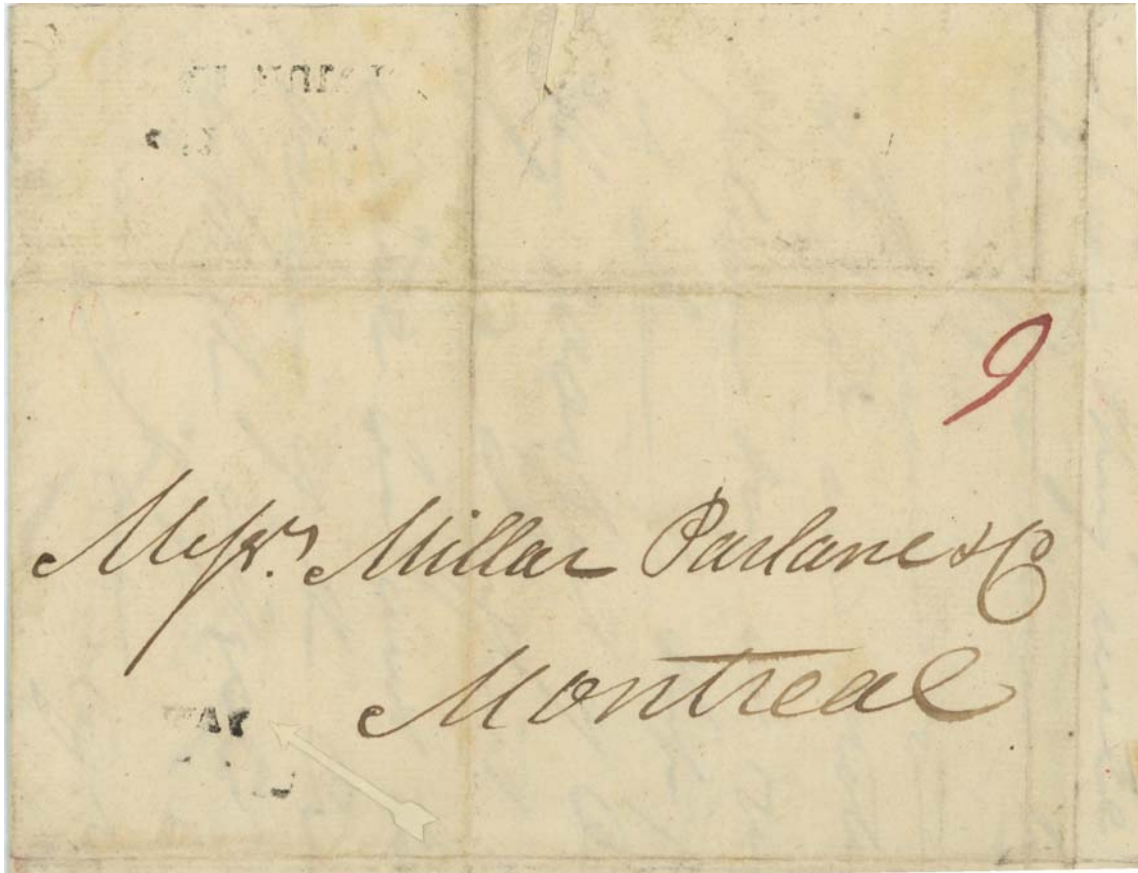 9
Messrs. Millar Parlane & Co
Montreal
WAY